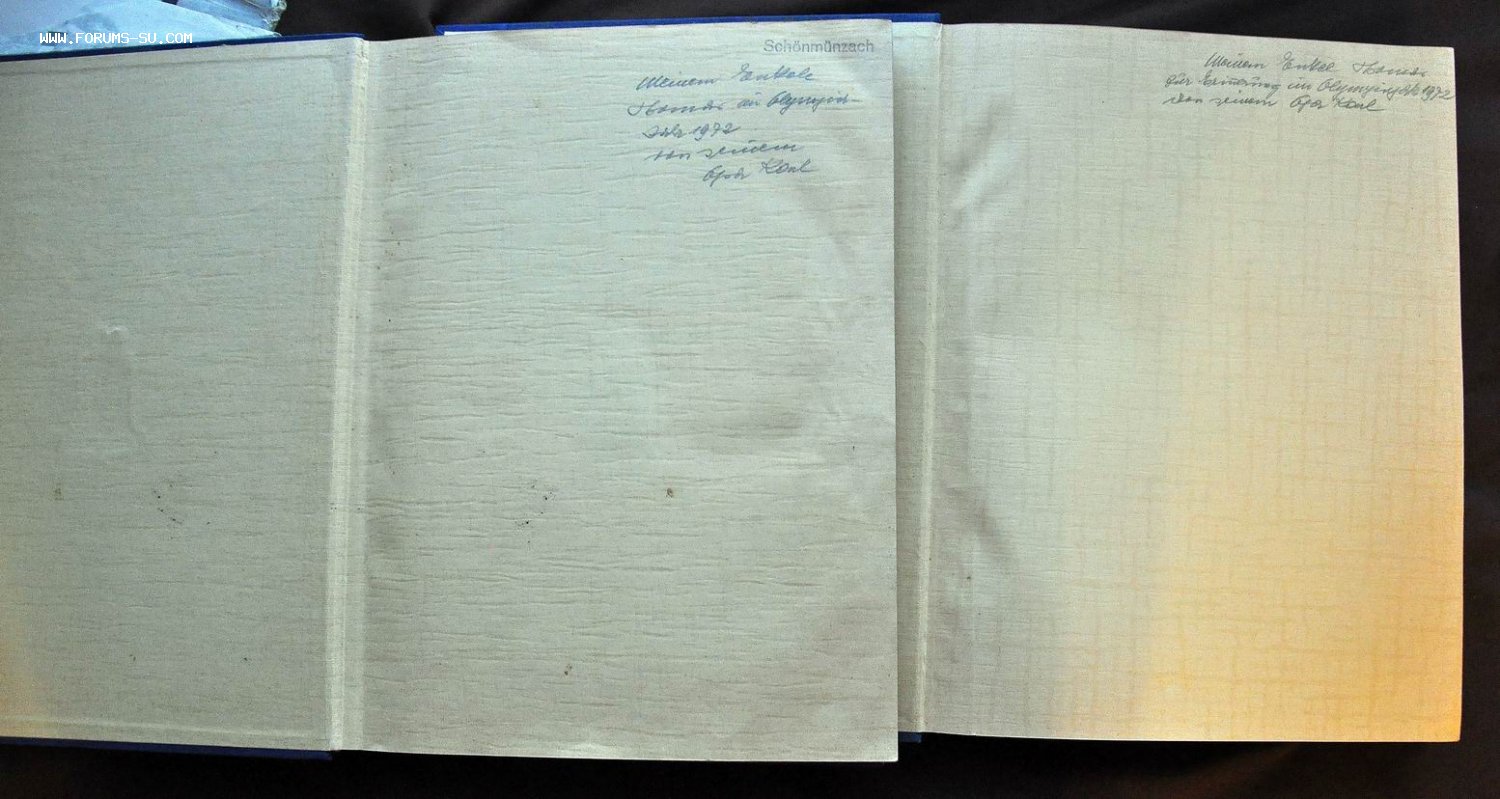 WWW.FORUMS-SU.COM
Schönmünzach
Meinem Enkel
Thomas im Olympia-
Jahr 1972
von seinem
Opa Karl
Meinem Enkel Thomas
zur Erinnerung im Olympiajahr 1972
von seinem Opa Karl